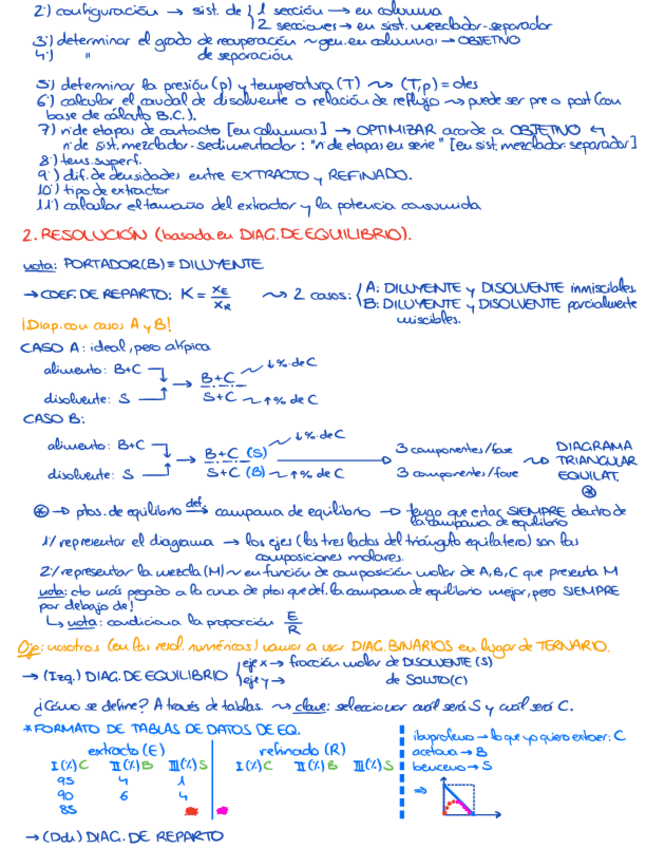 2º) configuración → sist. de { 1 sección → en columna
2 secciones → en sist. mezclador-separador
3º) determinar el grado de recuperación ~ gen. en columna → OBJETIVO
4º) " de separación
5º) determinar la presión (p) y temperatura (T) ⇝ (T,p) = ctes
6º) calcular el caudal de disolvente o relación de reflujo ⇝ puede ser pre o post (con
base de cálculo B.C.).
7º) nº de etapas de contacto [en columnas] → OPTIMIZAR acorde a OBJETIVO ↰
nº de sist. mezclador-sedimentador: "nº de etapas en serie" [en sist. mezclador-separador]
8º) tens. superf.
9º) dif. de densidades entre EXTRACTO y REFINADO.
10º) tipo de extractor
11º) calcular el tamaño del extractor y la potencia consumida
2. RESOLUCIÓN (basada en DIAG. DE EQUILIBRIO).
nota: PORTADOR (B) ≡ DILUYENTE
→ COEF. DE REPARTO: K = xE / xR ⇝ 2 casos: { A: DILUYENTE y DISOLVENTE inmiscibles.
B: DILUYENTE y DISOLVENTE parcialmente
miscibles.
¡Diap. con casos A y B!
CASO A: ideal, pero atípica
alimento: B+C
disolvente: S
→ B+C ~ ↓% de C
S+C ~ ↑% de C
CASO B:
alimento: B+C
disolvente: S
→ B+C (S) ~ ↓% de C
S+C (B) ~ ↑% de C
→ 3 componentes/fase
3 componentes/fase
⇝ DIAGRAMA
TRIANGULAR
EQUILAT.
⊛
⊛ → ptos. de equilibrio def→ campana de equilibrio → tengo que estar SIEMPRE dentro de
la campana de equilibrio
1º/ representar el diagrama → los ejes (los tres lados del triángulo equilatero) son las
composiciones molares.
2º/ representar la mezcla (M) ~ en función de composición molar de A, B, C que presenta M
nota: cto más pegado a la curva de ptos que def. la campana de equilibrio mejor, pero SIEMPRE
por debajo de!
↳ nota: condiciona la proporción E / R
Ojo: nosotros (en las resol. numéricas) vamos a usar DIAG. BINARIOS en lugar de TERNARIO.
→ (Izq.) DIAG. DE EQUILIBRIO { eje x → fracción molar de DISOLVENTE (S)
eje y → de SOLUTO (C)
¿Cómo se define? A través de tablas. ⇝ clave: seleccionar cuál será S y cuál será C.
* FORMATO DE TABLAS DE DATOS DE EQ.
extracto (E) refinado (R)
I (%) C II (%) B III (%) S I (%) C II (%) B III (%) S
95 4 1
90 6 4
85
ibuprofeno → lo que yo quiero extraer: C
acetona → B
benceno → S
→ (Dch.) DIAG. DE REPARTO